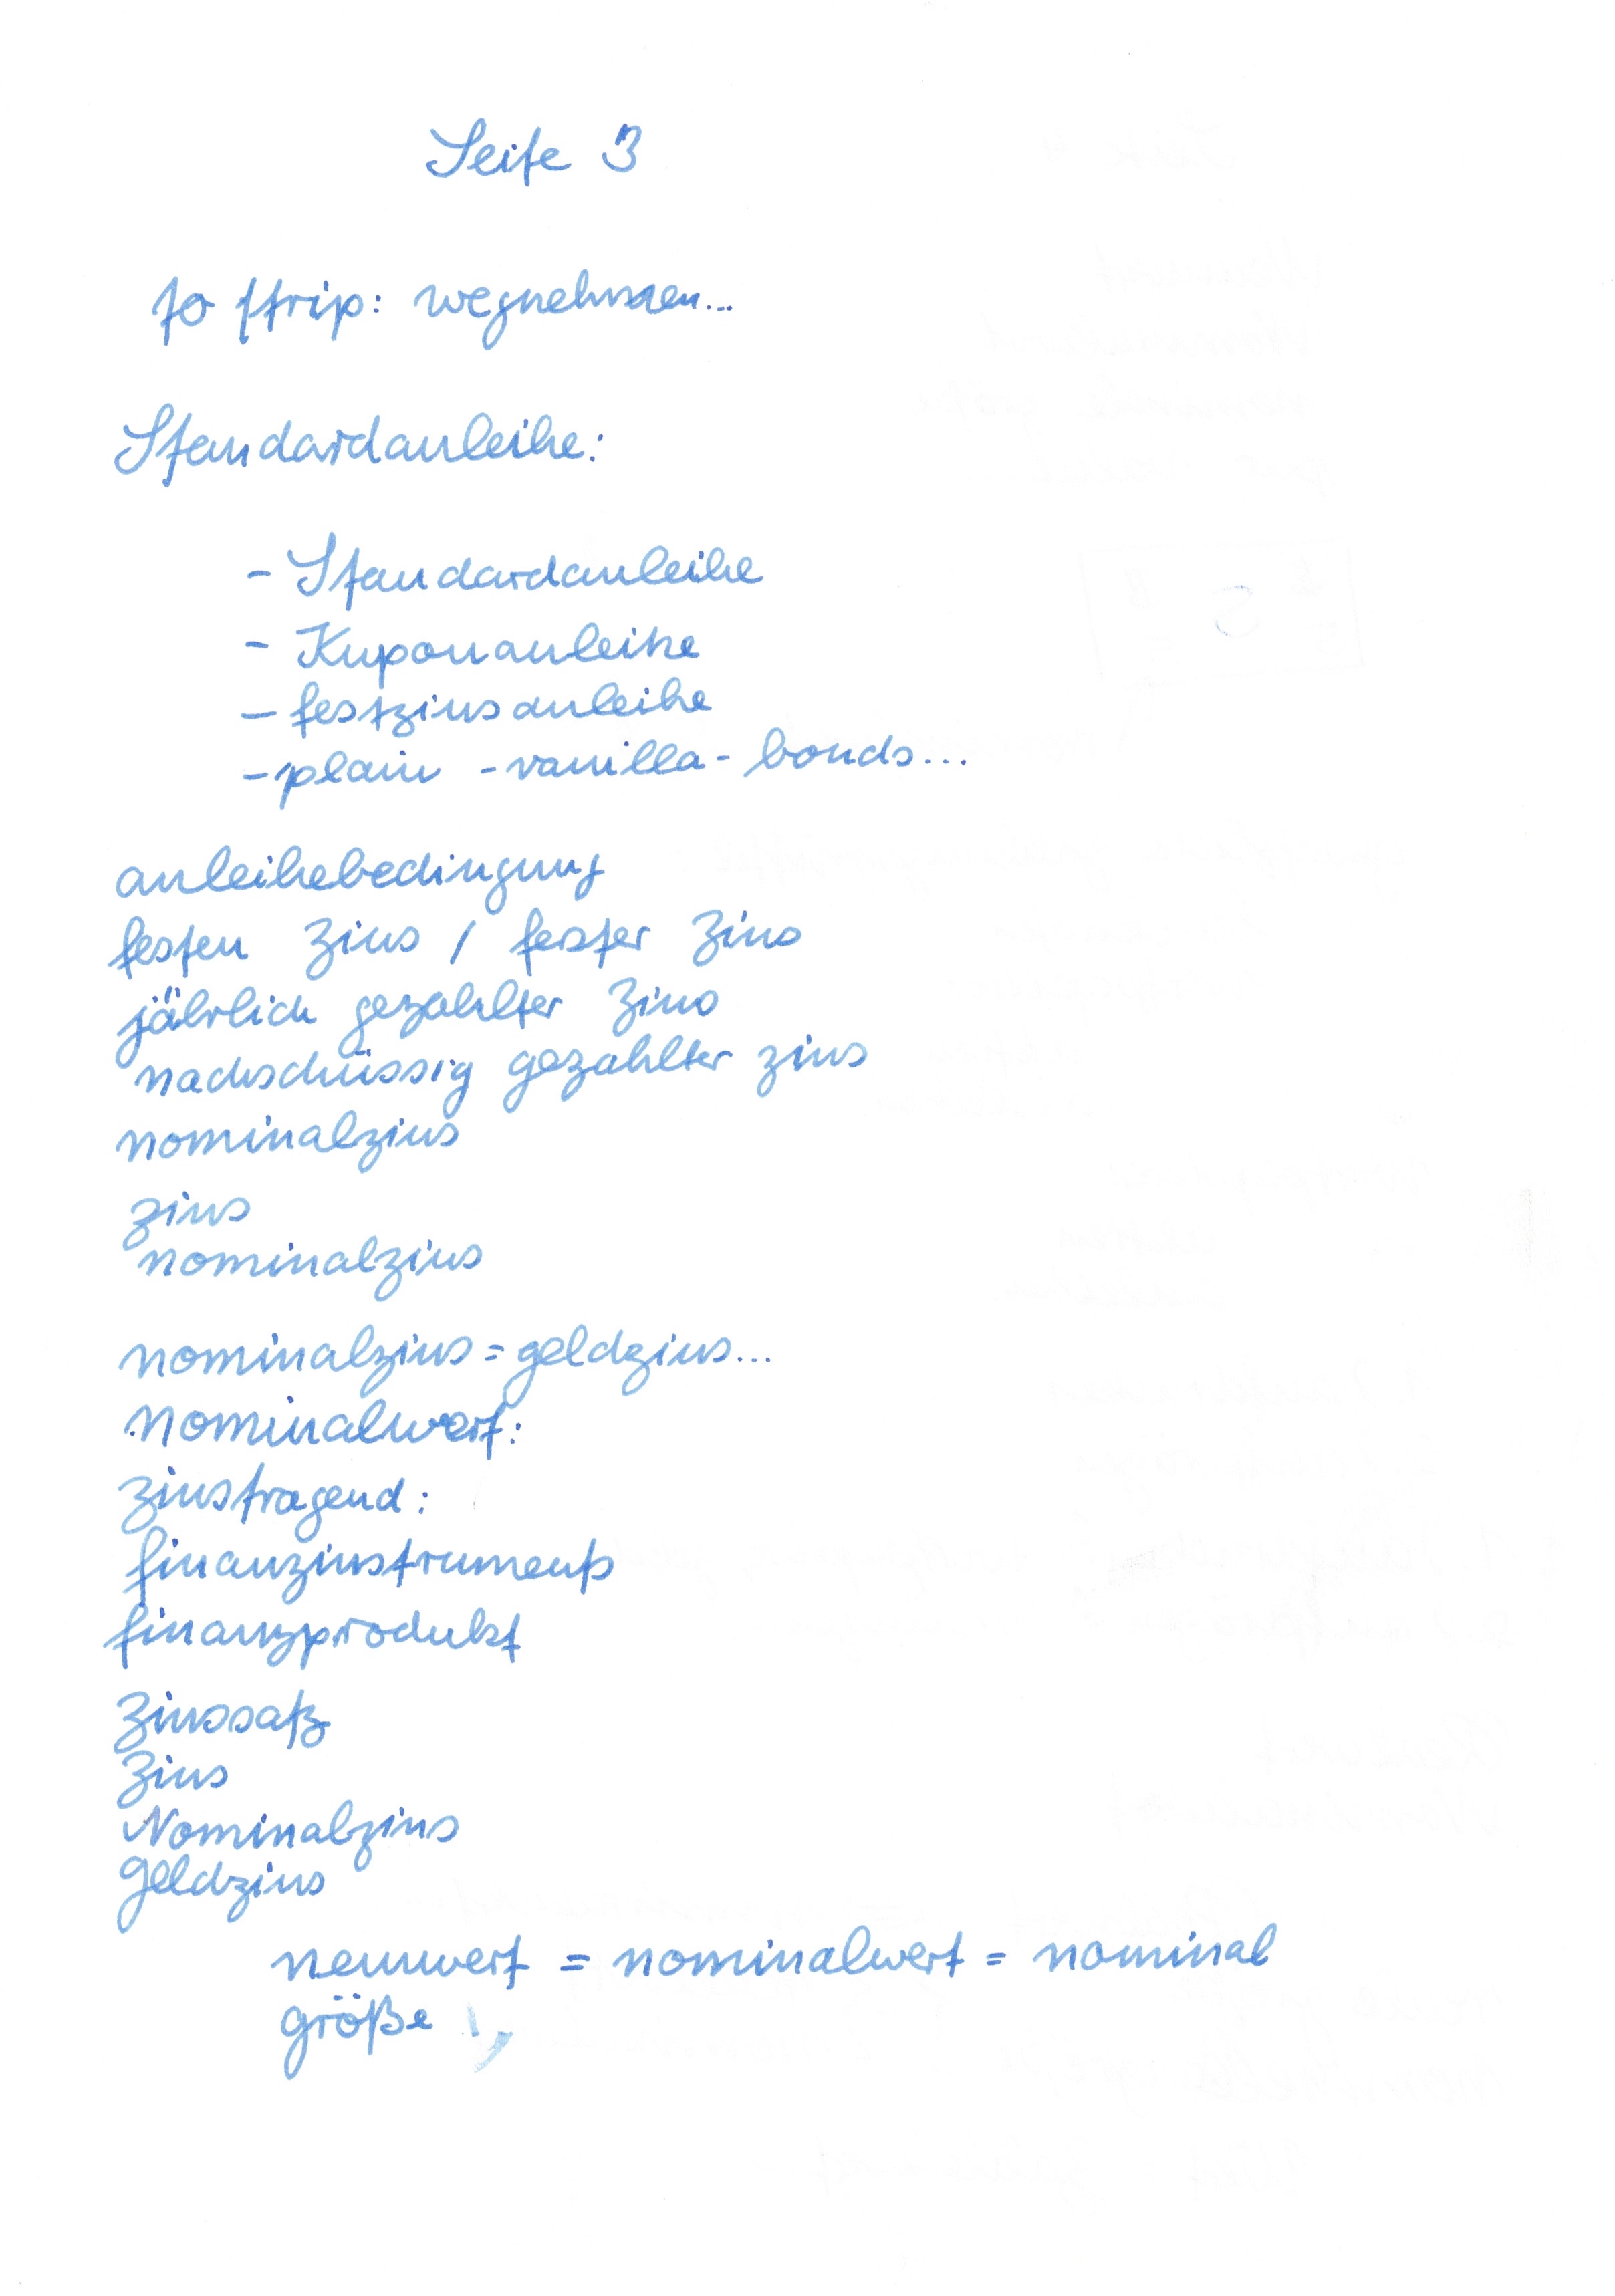 Seite 3
to strip: wegnehmen...
Standardanleihe:
- Standardanleihe
- Kuponanleihe
- festzinsanleihe
- plain - vanilla - bonds...
anleihebedingung
festen Zins / fester Zins
jährlich gezahlter Zins
nachschüssig gezahlter zins
nominalzins
zins
nominalzins
nominalzins = geldzins...
Nominalwert:
zinstragend:
finanzinstruments
finanzprodukt
Zinssatz
Zins
Nominalzins
geldzins
nennwert = nominalwert = nominal
größe